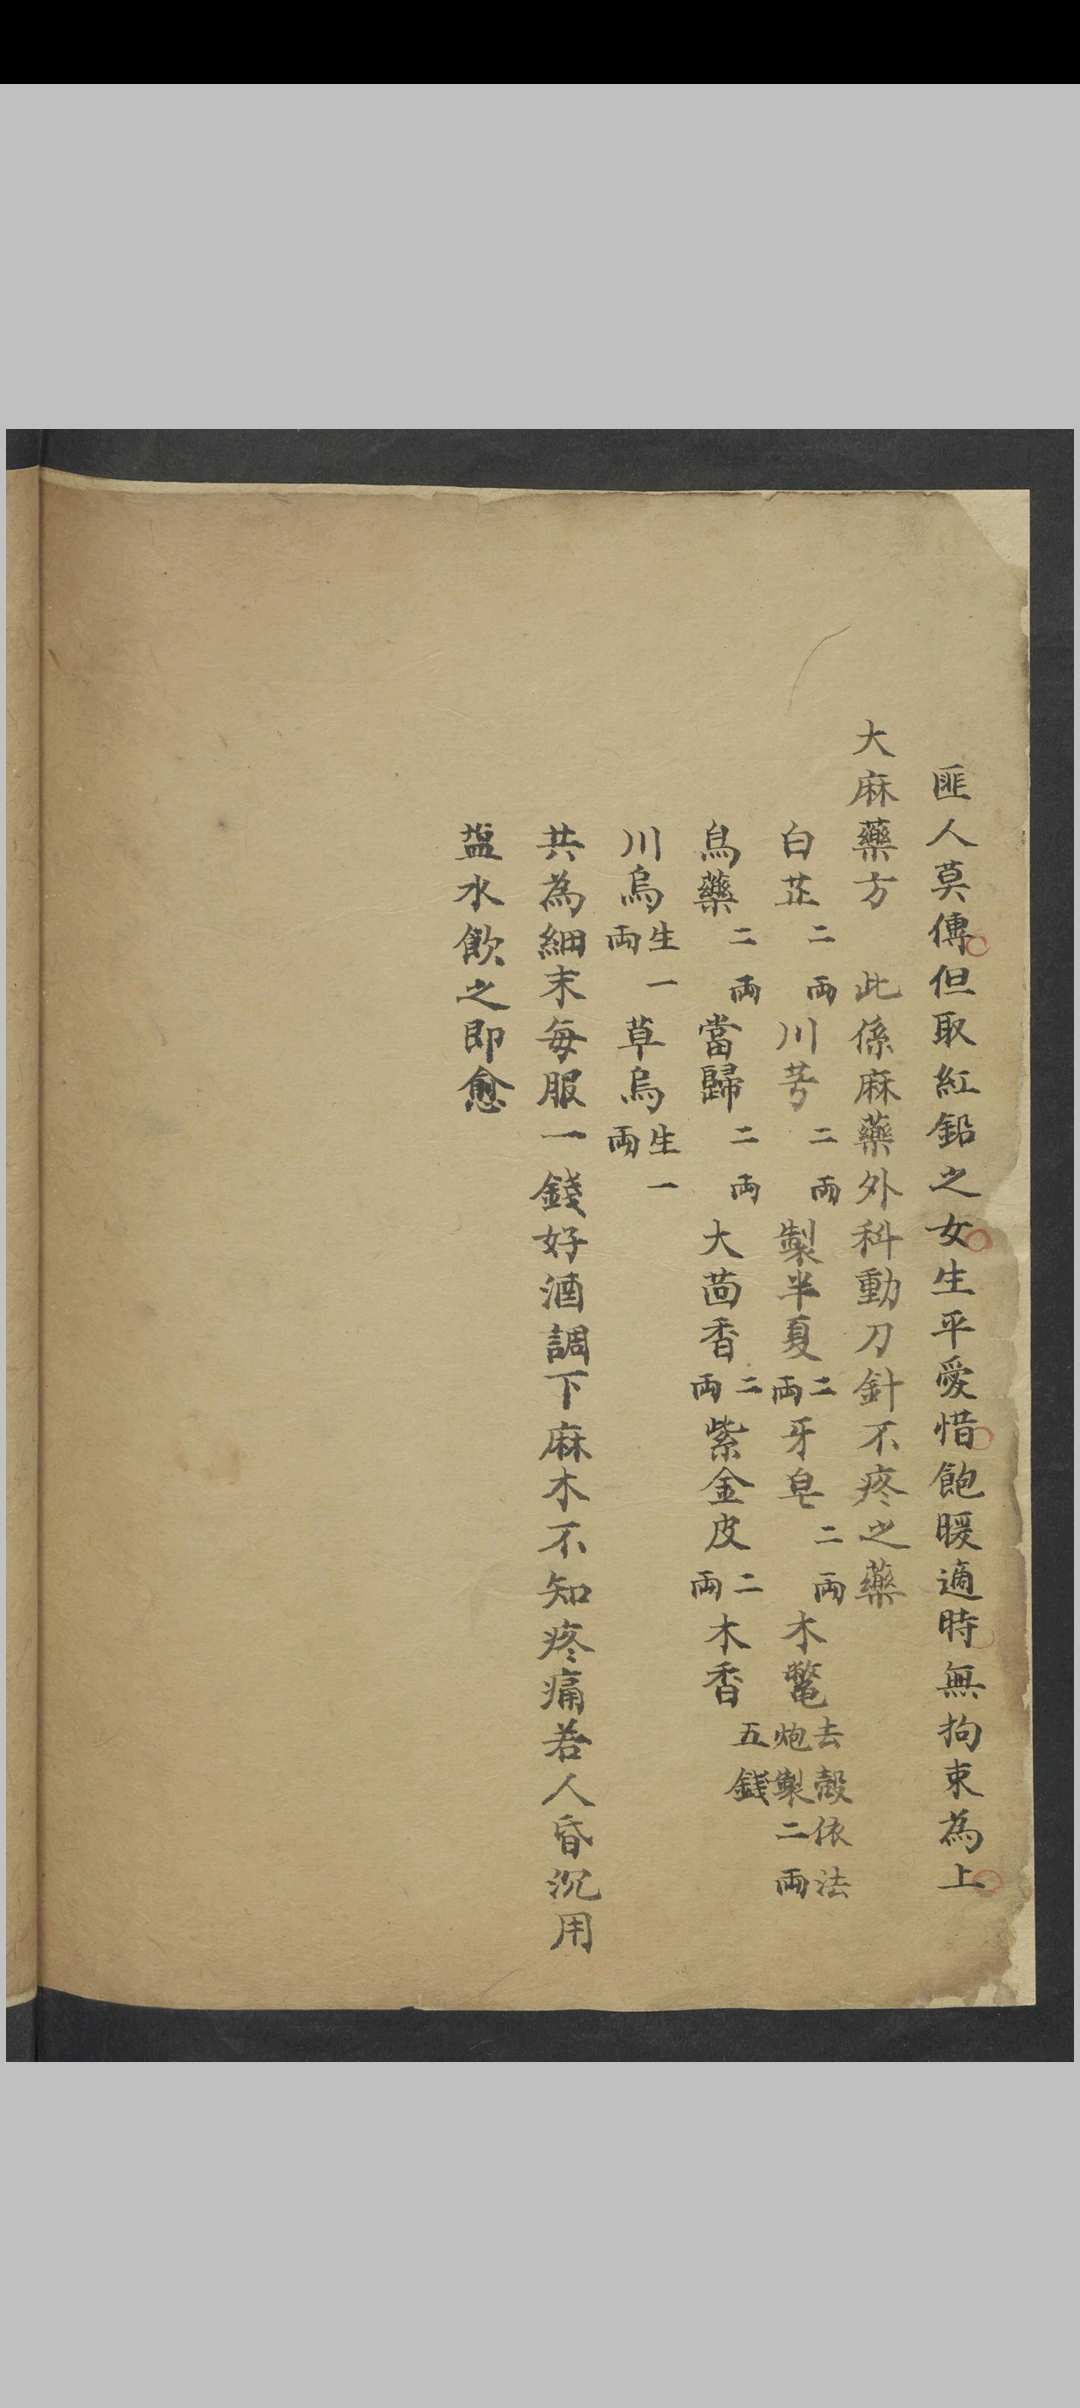 匪人莫傳但取紅鉛之女生平愛惜飽暖適時無拘束為上
大麻藥方　此係麻藥外科動刀針不疼之藥
白芷二両川芎二両製半夏二両牙皂二両木鼈去殼依法炮製二両
烏藥二両當歸二両大茴香二両紫金皮二両木香五錢
川烏生一両草烏生一両
共為細末每服一錢好酒調下麻木不知疼痛若人昏沉用
盐水飲之即愈